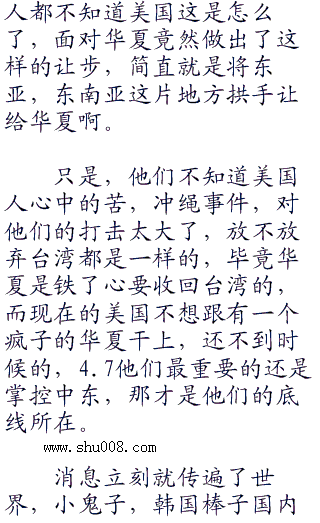 人都不知道美国这是怎么
了，面对华夏竟然做出了这
样的让步，简直就是将东
亚，东南亚这片地方拱手让
给华夏啊。
只是，他们不知道美国
人心中的苦，冲绳事件，对
他们的打击太大了，放不放
弃台湾都是一样的，毕竟华
夏是铁了心要收回台湾的，
而现在的美国不想跟有一个
疯子的华夏干上，还不到时
候的，4.7他们最重要的还是
掌控中东，那才是他们的底
线所在。
www.shu008.com
消息立刻就传遍了世
界，小鬼子，韩国棒子国内